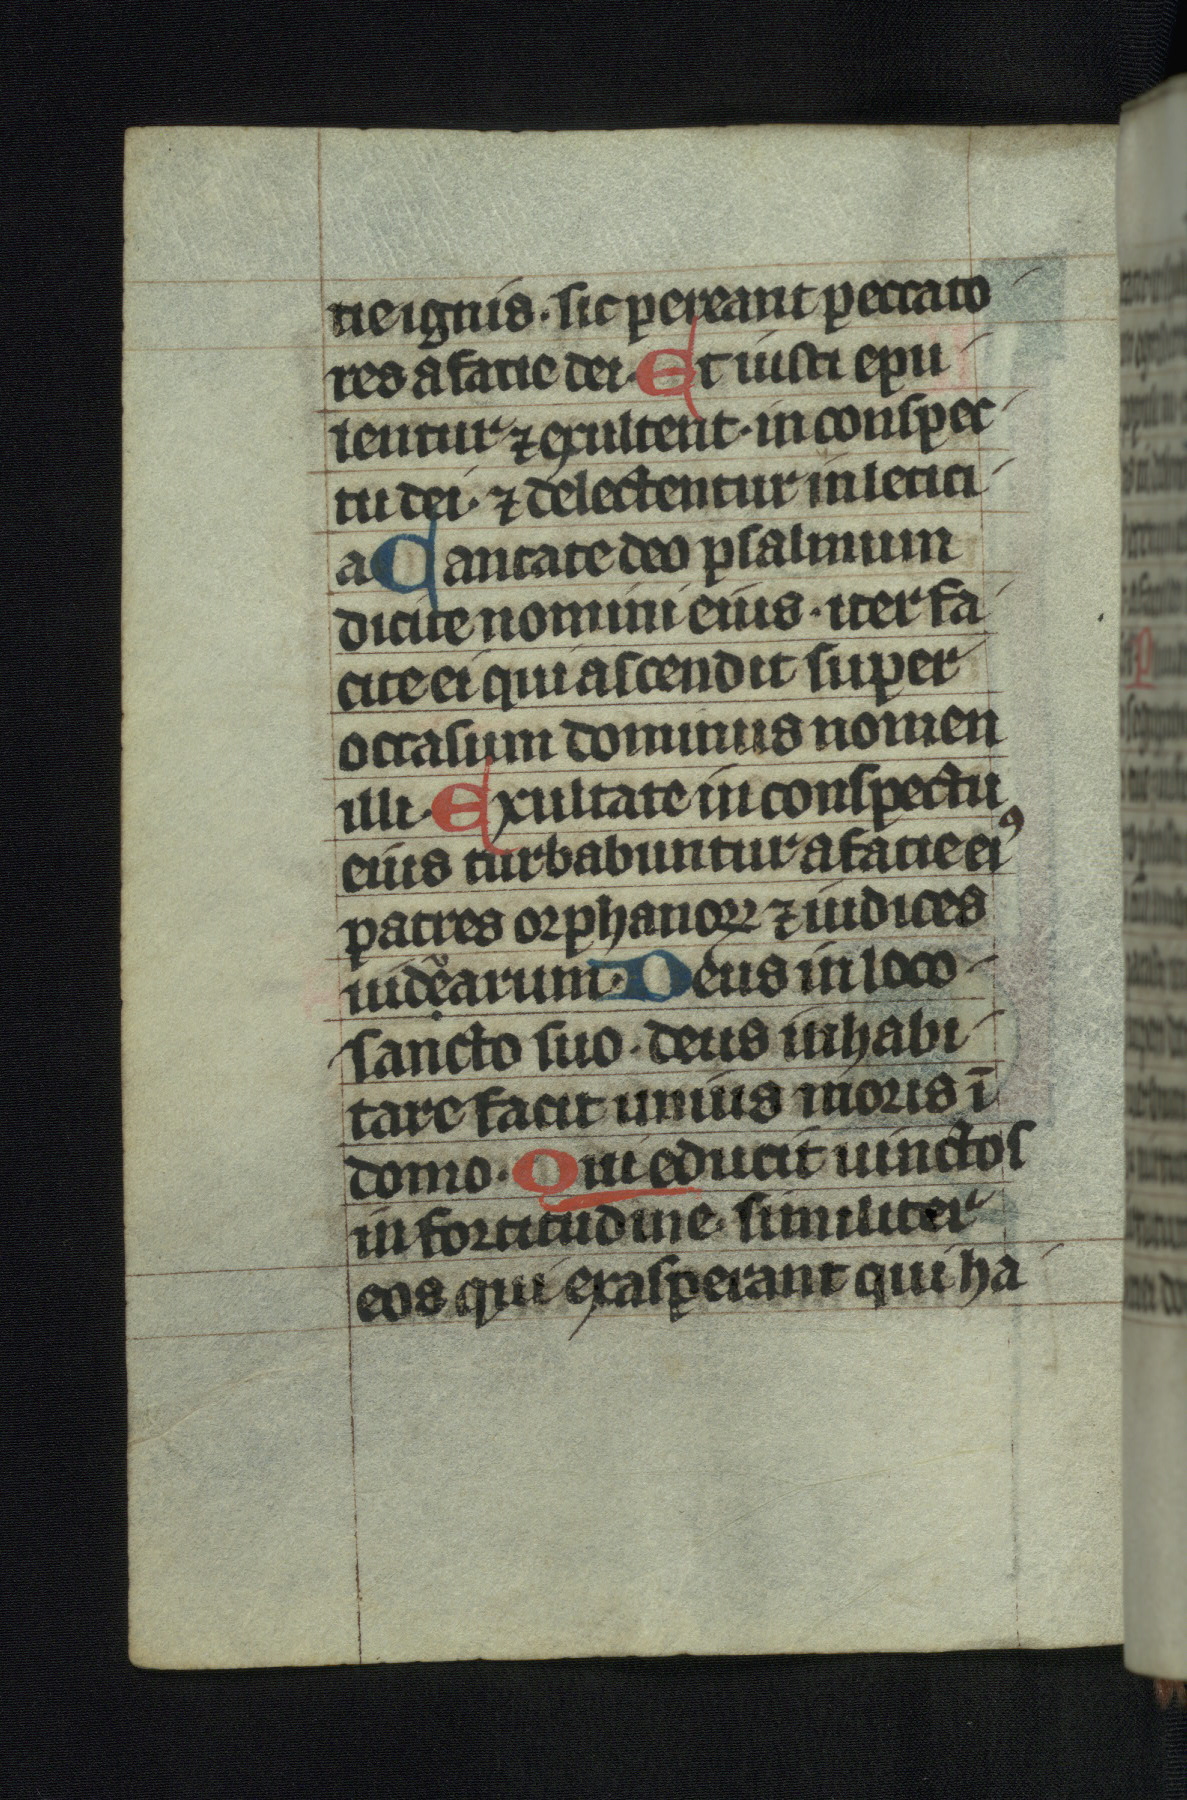 tie ignis. sic pereant peccato
res a facie dei. Et iusti epu
lentur ⁊ exultent. in conspec
tu dei. ⁊ delectentur in letici
a Cantate deo psalmum
dicite nomini eius. iter fa
cite ei qui ascendit super
occasum dominus nomen
illi. Exultate in conspectu
eius turbabuntur a facie eiꝰ
patres orphanoꝝ ⁊ iudices
uidearum. Deus in loco
sancto suo. deus inhabi
tare facit unius moris ī
domo. Qui educit uinctos
in fortitudine. similiter
eos qui exasperant qui ha